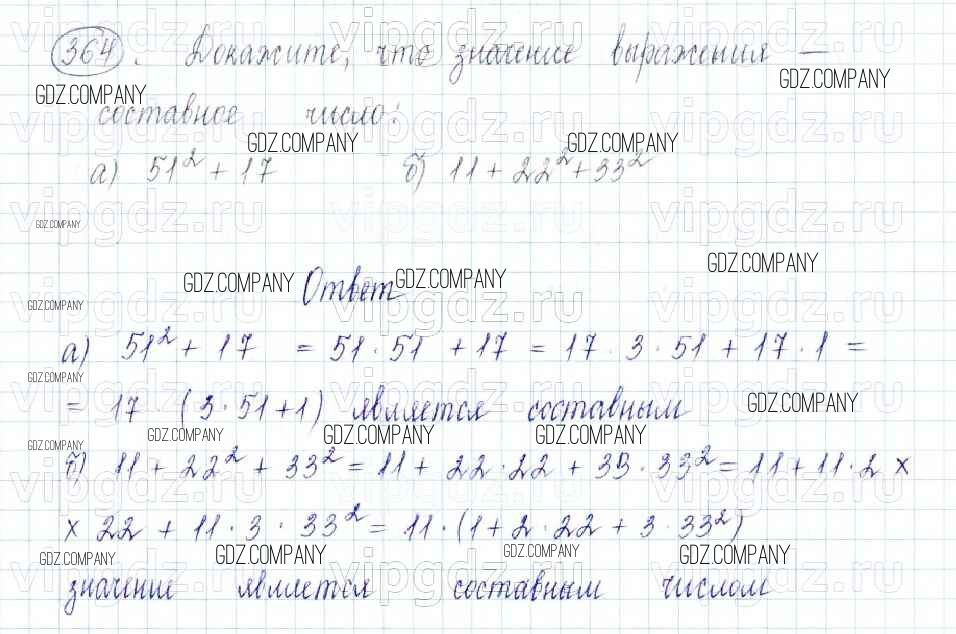 364. Докажите, что значение выражения —
составное число:
а) 51² + 17 б) 11 + 22² + 33²
Ответ
а) 51² + 17 = 51 · 51 + 17 = 17 · 3 · 51 + 17 · 1 =
= 17 · (3 · 51 + 1) является составным
б) 11 + 22² + 33² = 11 + 22 · 22 + 33 · 33² = 11 + 11 · 2 ×
× 22 + 11 · 3 · 33² = 11 · (1 + 2 · 22 + 3 · 33²)
значение является составным числом
vipgdz.ru
GDZ.COMPANY